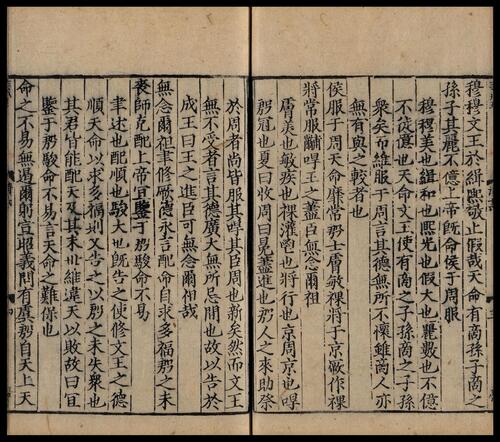 穆穆文王於緝熙敬止假哉天命有商孫子商之
孫子其麗不億上帝旣命侯于周服
穆穆美也緝和也熙光也假大也麗數也不億
不徒億也天命文王使有商之子孫商之子孫
衆矣而維服于周言其德無所不懷雖商人亦
無有與之較者也
侯服于周天命靡常殷士膚敏祼將于京厥作祼
將常服黼冔王之藎臣無念爾祖
膚美也敏疾也祼灌鬯也將行也京周京也冔
殷冠也夏曰收周曰冕藎進也殷人之來助祭
於周者尚皆服其冔其臣周也新矣然而文王
無不受者言其德廣大無所忌間也故以告於
成王曰王之進臣可無念爾祖哉
無念爾祖聿脩厥德永言配命自求多福殷之未
喪師克配上帝宜鑒于殷駿命不易
聿述也配順也駿大也旣告之使脩文王之德
順天命以求多福則又告之以殷之未失衆也
其君皆能配天及其末世維違天以敗故曰宜
鑒于殷駿命不易言天命之難保也
命之不易無遏爾躬宣昭義問有虞殷自天上天